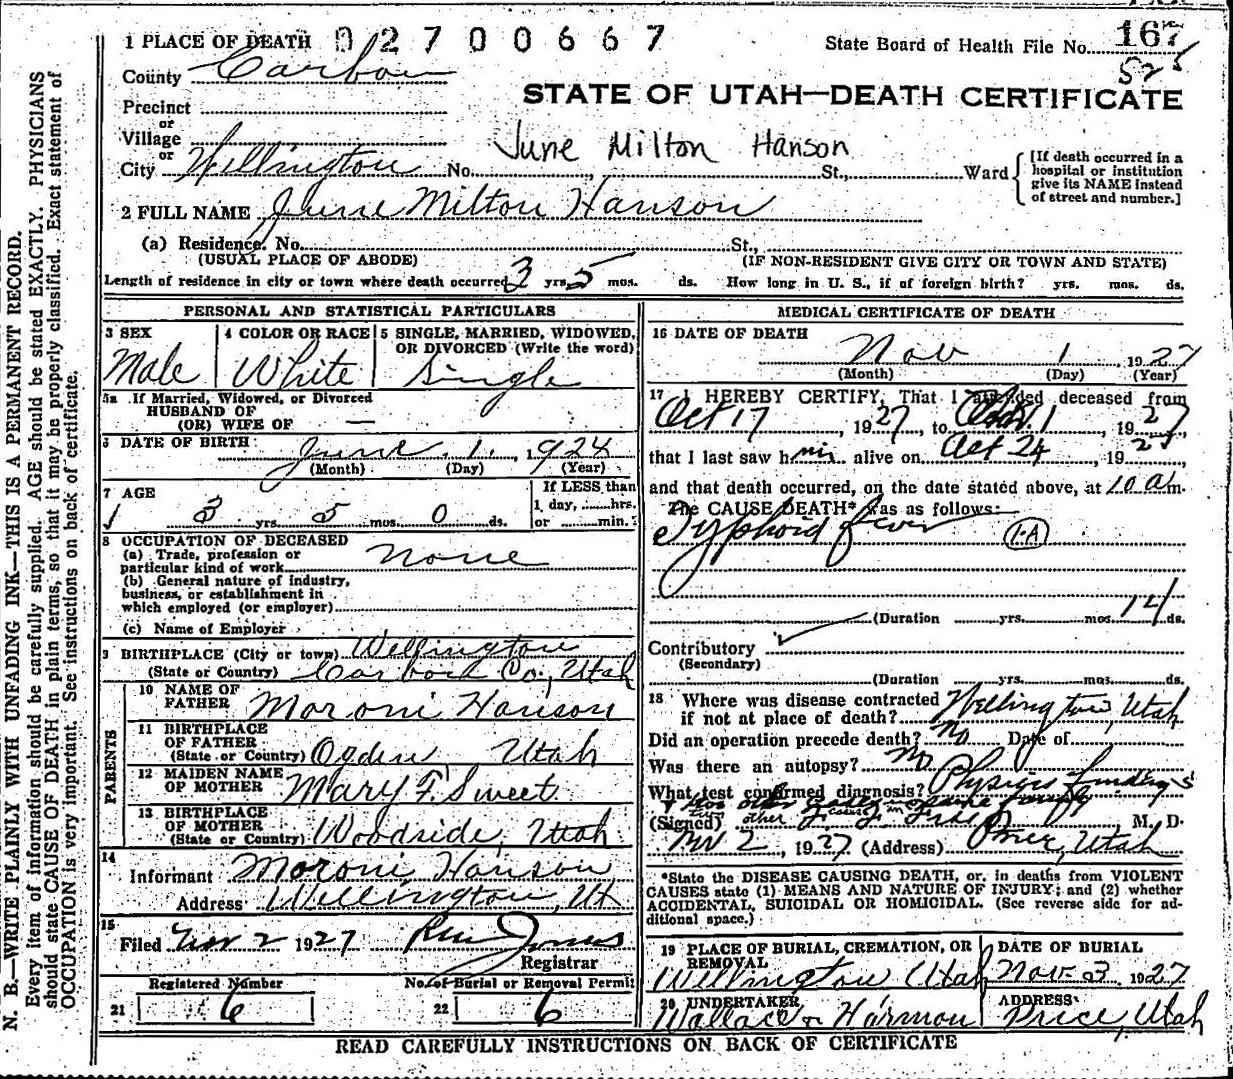 1 PLACE OF DEATH 02700667
State Board of Health File No. 167
525
County Carbon
STATE OF UTAH—DEATH CERTIFICATE
Precinct
or
Village
or
June Milton Hanson
City Wellington No. , St., Ward
[If death occurred in a hospital or institution give its NAME instead of street and number.]
2 FULL NAME June Milton Hanson
(a) Residence. No. St.,
(USUAL PLACE OF ABODE) (IF NON-RESIDENT GIVE CITY OR TOWN AND STATE)
Length of residence in city or town where death occurred 3 yrs. 5 mos. ds. How long in U. S., if of foreign birth? yrs. mos. ds.
PERSONAL AND STATISTICAL PARTICULARS
3 SEX Male
4 COLOR OR RACE White
5 SINGLE, MARRIED, WIDOWED, OR DIVORCED (Write the word) Single
5a If Married, Widowed, or Divorced
HUSBAND OF
(OR) WIFE OF —
6 DATE OF BIRTH: June 1, 1924
(Month) (Day) (Year)
7 AGE
3 yrs. 5 mos. 0 ds.
If LESS than 1 day, hrs. or min.
8 OCCUPATION OF DECEASED
(a) Trade, profession or particular kind of work none
(b) General nature of industry, business, or establishment in which employed (or employer)
(c) Name of Employer
9 BIRTHPLACE (City or town) Wellington
(State or Country) Carbon Co., Utah
PARENTS
10 NAME OF FATHER Moroni Hanson
11 BIRTHPLACE OF FATHER (State or Country) Ogden Utah
12 MAIDEN NAME OF MOTHER Mary F. Sweet
13 BIRTHPLACE OF MOTHER (State or Country) Woodside, Utah
14
Informant Moroni Hanson
Address Wellington, Ut
15
Filed Nov 2 1927 Jones
Registrar
Registered Number
21 6
No. of Burial or Removal Permit
22 6
MEDICAL CERTIFICATE OF DEATH
16 DATE OF DEATH
Nov 1, 1927
(Month) (Day) (Year)
17 I HEREBY CERTIFY, That I attended deceased from
Oct 17, 1927, to Nov. 1, 1927,
that I last saw him alive on Oct 24, 1927,
and that death occurred, on the date stated above, at 10 a m.
The CAUSE DEATH* was as follows:
Typhoid fever 1-A
(Duration yrs. mos. 14 ds.
Contributory
(Secondary)
(Duration yrs. mos. ds.
18 Where was disease contracted
if not at place of death? Wellington, Utah
Did an operation precede death? No Date of
Was there an autopsy? No
What test confirmed diagnosis? Physical findings
other cases in
(Signed) M. D.
Nov 2, 1927 (Address) Price, Utah
*State the DISEASE CAUSING DEATH, or, in deaths from VIOLENT
CAUSES state (1) MEANS AND NATURE OF INJURY; and (2) whether
ACCIDENTAL, SUICIDAL OR HOMICIDAL. (See reverse side for additional space.)
19 PLACE OF BURIAL, CREMATION, OR REMOVAL Wellington Utah
DATE OF BURIAL Nov. 3 1927
20 UNDERTAKER Wallace & Harmon
ADDRESS Price, Utah
READ CAREFULLY INSTRUCTIONS ON BACK OF CERTIFICATE
N. B.—WRITE PLAINLY WITH UNFADING INK—THIS IS A PERMANENT RECORD.
Every item of information should be carefully supplied. AGE should be stated EXACTLY. PHYSICIANS
should state CAUSE OF DEATH in plain terms, so that it may be properly classified. Exact statement of
OCCUPATION is very important. See instructions on back of certificate.